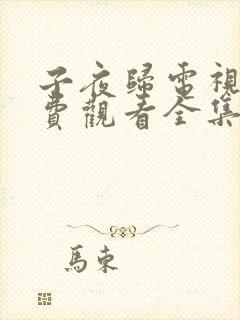 子夜歸電視
費觀看全集
馬東